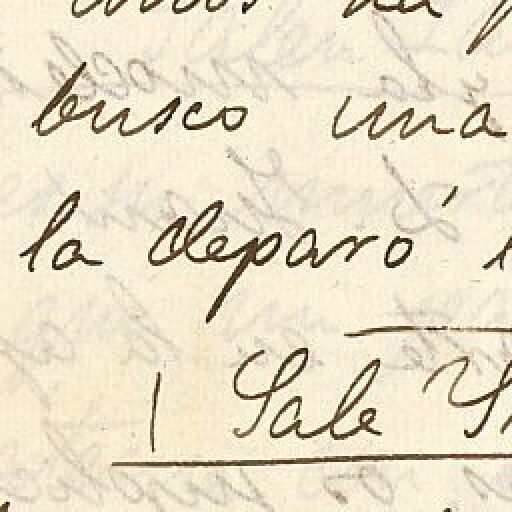 busco una
la deparó
Sale